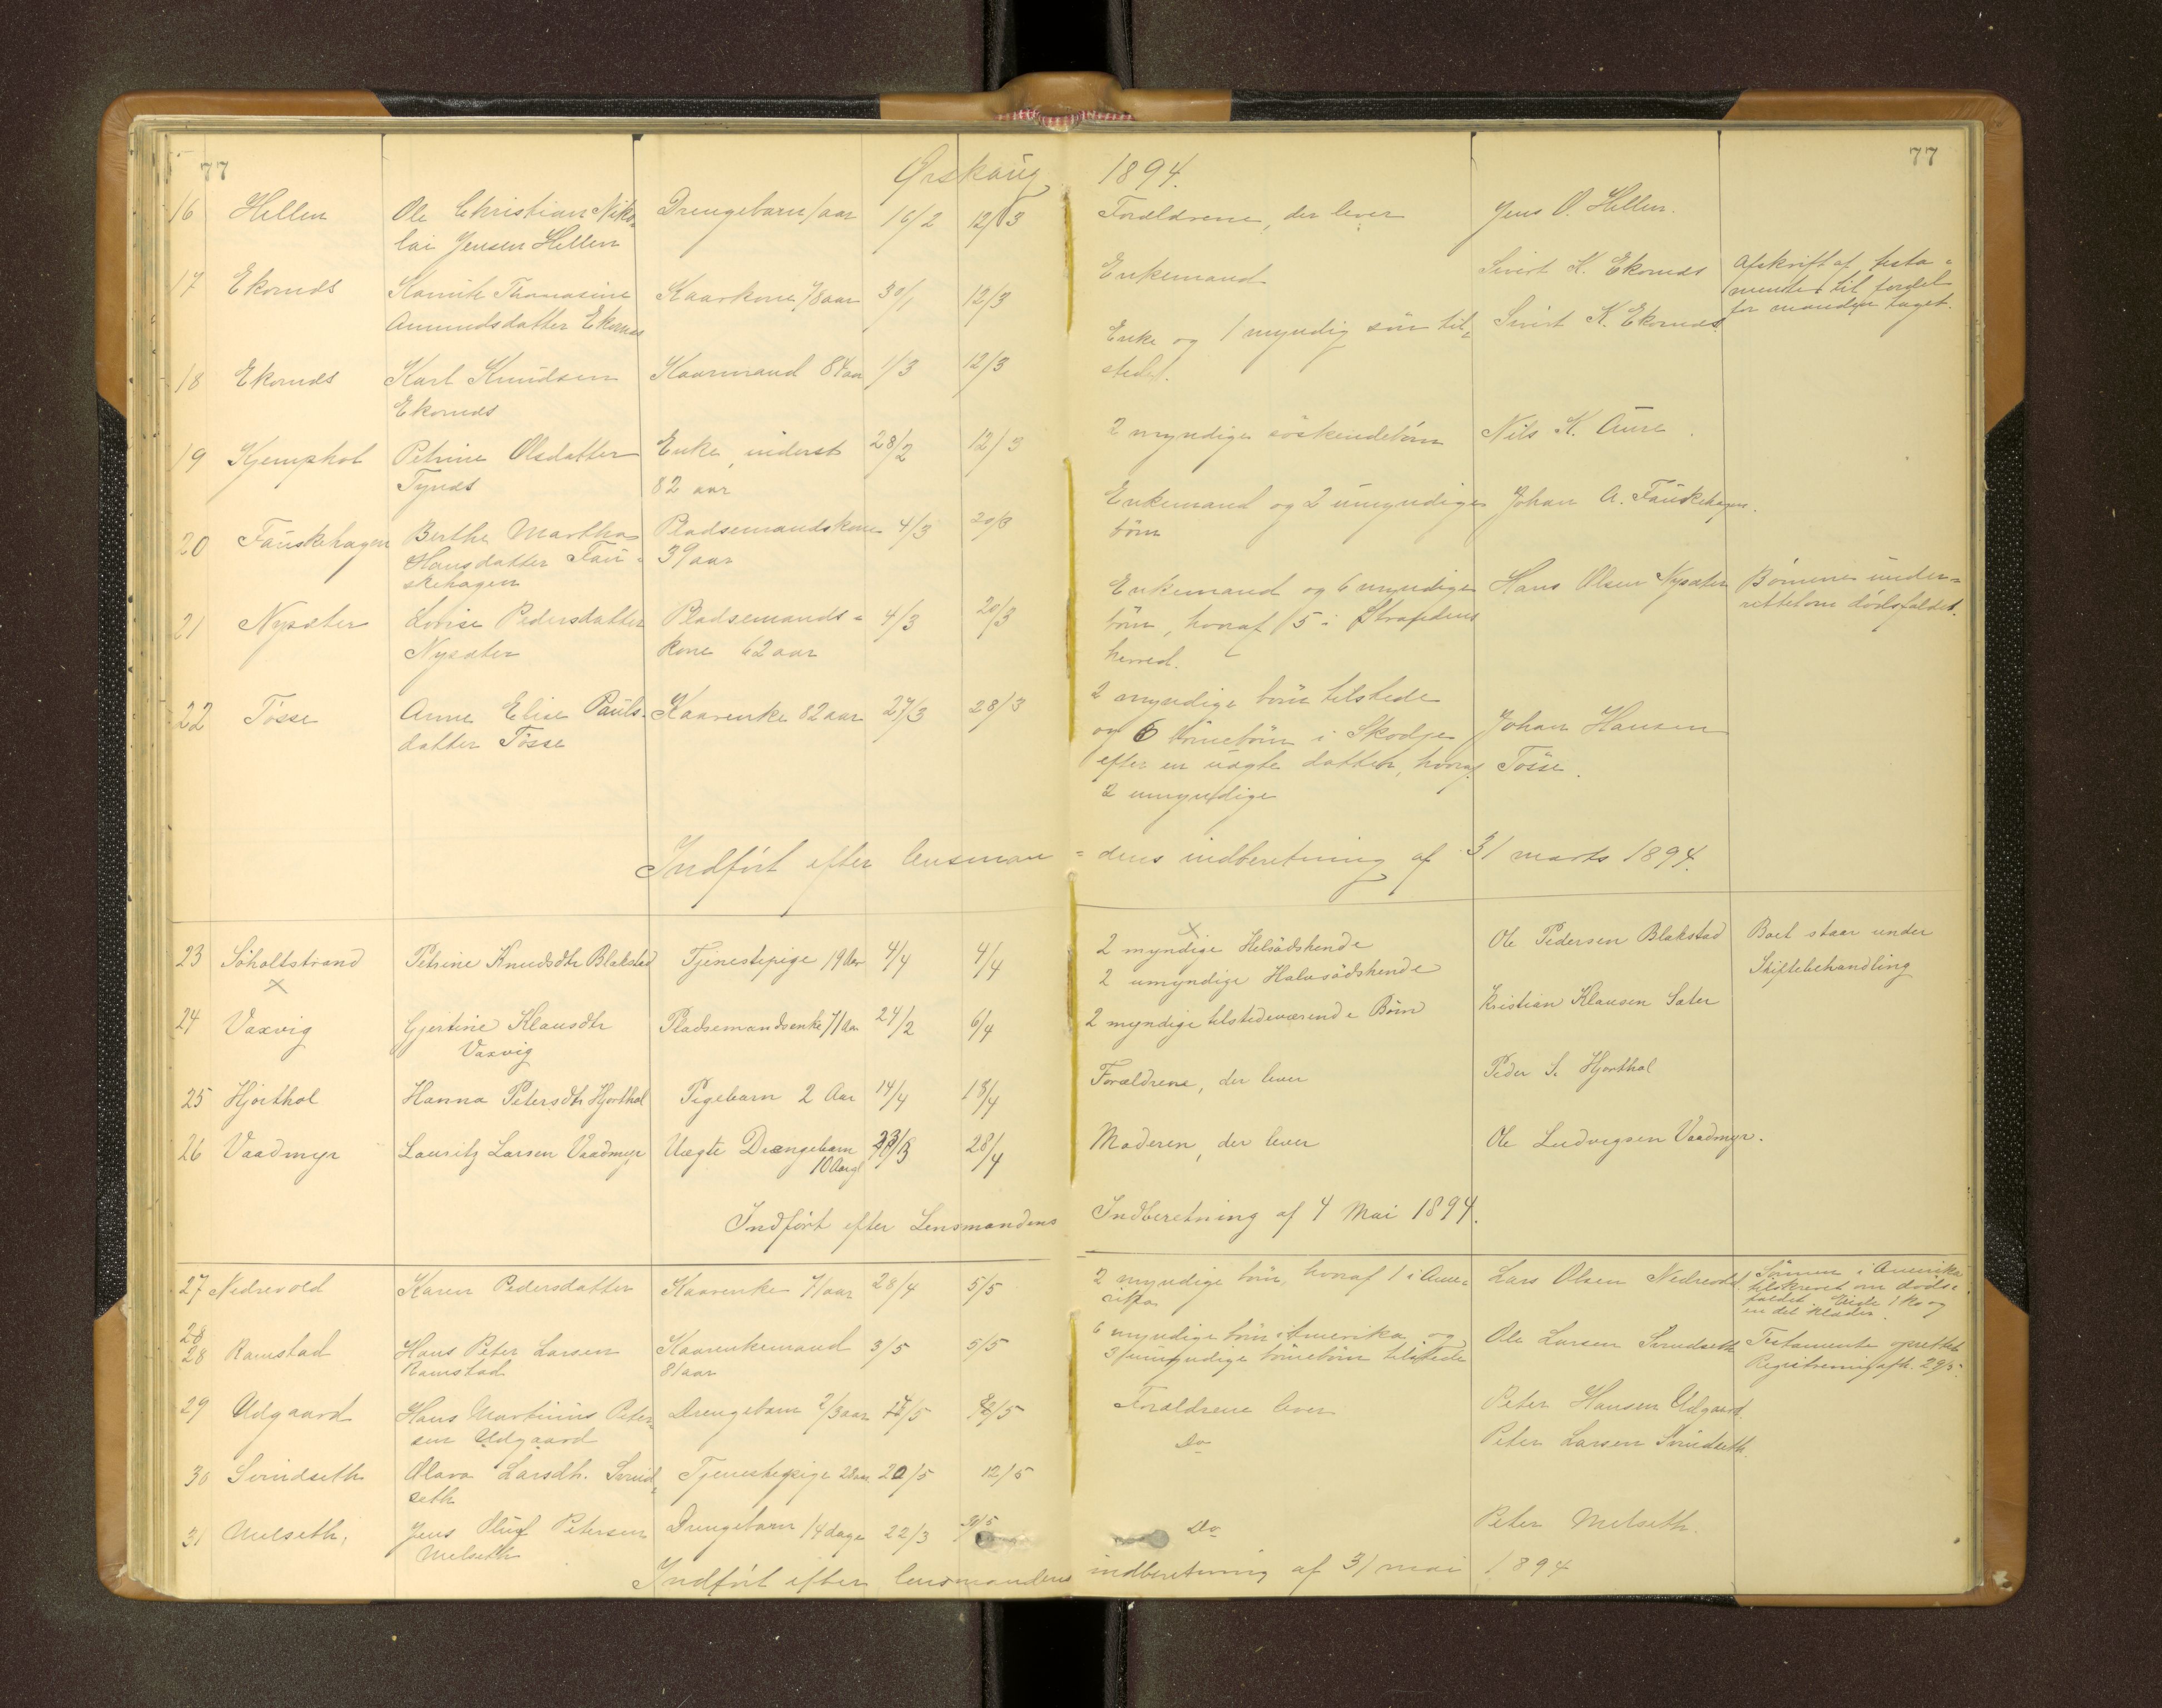 77
Ørskoug 1894.
77
16 Hellen Ole Christian Niko- Drengebarn 1 aar 16/2 12/3 Forældrene, der lever Jens O. Hellen.
lai Jensen Hellen
17 Ekornæs Thomasine Kaarkone 78 aar 30/1 12/3 Enkemand Sivert K. Ekornæs Afskrift af testa-
Amundsdatter Ekornæs mentet til fordel
for manden taget.
18 Ekornæs Karl Knudsen Kaarmand 84 aar 1/3 12/3 Enke og 1 myndig søn til- Sivert K. Ekornæs
Ekornæs stede.
19 Kjemphol Petrine Olsdatter Enke, inderst 28/2 12/3 2 myndige søskendebørn Nils K. Aure.
Tynæs 82 aar
20 Fauskehagen Berthe Martha Pladsemandskone 4/3 20/3 Enkemand og 2 umyndige Johan A. Fauskehagen.
Hansdatter Fau- 39 aar børn
skehagen
21 Nysæter Lovise Pedersdatter Pladsemands- 4/3 20/3 Enkemand og 6 myndige Hans Olsen Nysæter Børnene under-
Nysæter kone 62 aar børn, hvoraf 5 i Strandens rettet om dødsfaldet.
herred.
22 Tøsse Anne Elise Pauls- Kaarenke 82 aar 27/3 28/3 2 myndige børn tilstede
datter Tøsse og 6 børnebørn i Skodje Johan Hansen
efter en uægte datter, hvoraf Tøsse.
2 umyndige
Indført efter lensman-dens indberetning af 31 marts 1894.
23 Søholtstrand Petrine Knudsdtr Blakstad Tjenestepige 19 Aar 4/4 4/4 2 myndige Helsødskende Ole Pedersen Blakstad Boet staar under
x 2 umyndige Halvsødskende Skiftebehandling
24 Vaxvig Gjertine Klausdtr Pladsemandsenke 71 Aar 24/2 6/4 2 myndige tilstedeværende Børn Kristian Klausen Sæter
Vaxvig
25 Hjorthol Hanna Petersdtr Hjorthol Pigebarn 2 Aar 14/4 18/4 Forældrene, der lever Peder S. Hjorthol
26 Vaadmyr Lauritz Larsen Vaadmyr Uægte Drengebarn 28/4 Moderen, der lever Ole Ludvigsen Vaadmyr.
10 Aar gl
Indført efter Lensmandens Indberetning af 4 Mai 1894.
27 Nedrevold Karen Pedersdatter Kaarenke 71 aar 28/4 5/5 2 myndige børn, hvoraf 1 i Ame- Lars Olsen Nedrevold. Sønnen i Amerika
rika tilskrevet om døds-
faldet. Eiede 1 ko og
en del klæder.
28
28 Ramstad Hans Peter Larsen Kaarenkemand 3/5 5/5 6 myndige børn i Amerika og Ole Larsen Svindseth Testamente oprettet
Ramstad 81 aar 3 umyndige børnebørn tilstede Registrering afh. 29/5.
29 Udgaard Hans Martinus Peter- Drengebarn 2/3 aar Forældrene lever Peter Hansen Udgaard.
sen Udgaard
30 Svindseth Olava Larsdtr. Svind- Tjenestepige 20/5 12/5 Do Peter Larsen Svindseth.
seth
31 Melseth, Jens Oluf Petersen Drengebarn 14 dage 22/3 Do Peter Melseth.
Melseth
Indført efter lensmandens indberetning af 31 mai 1894